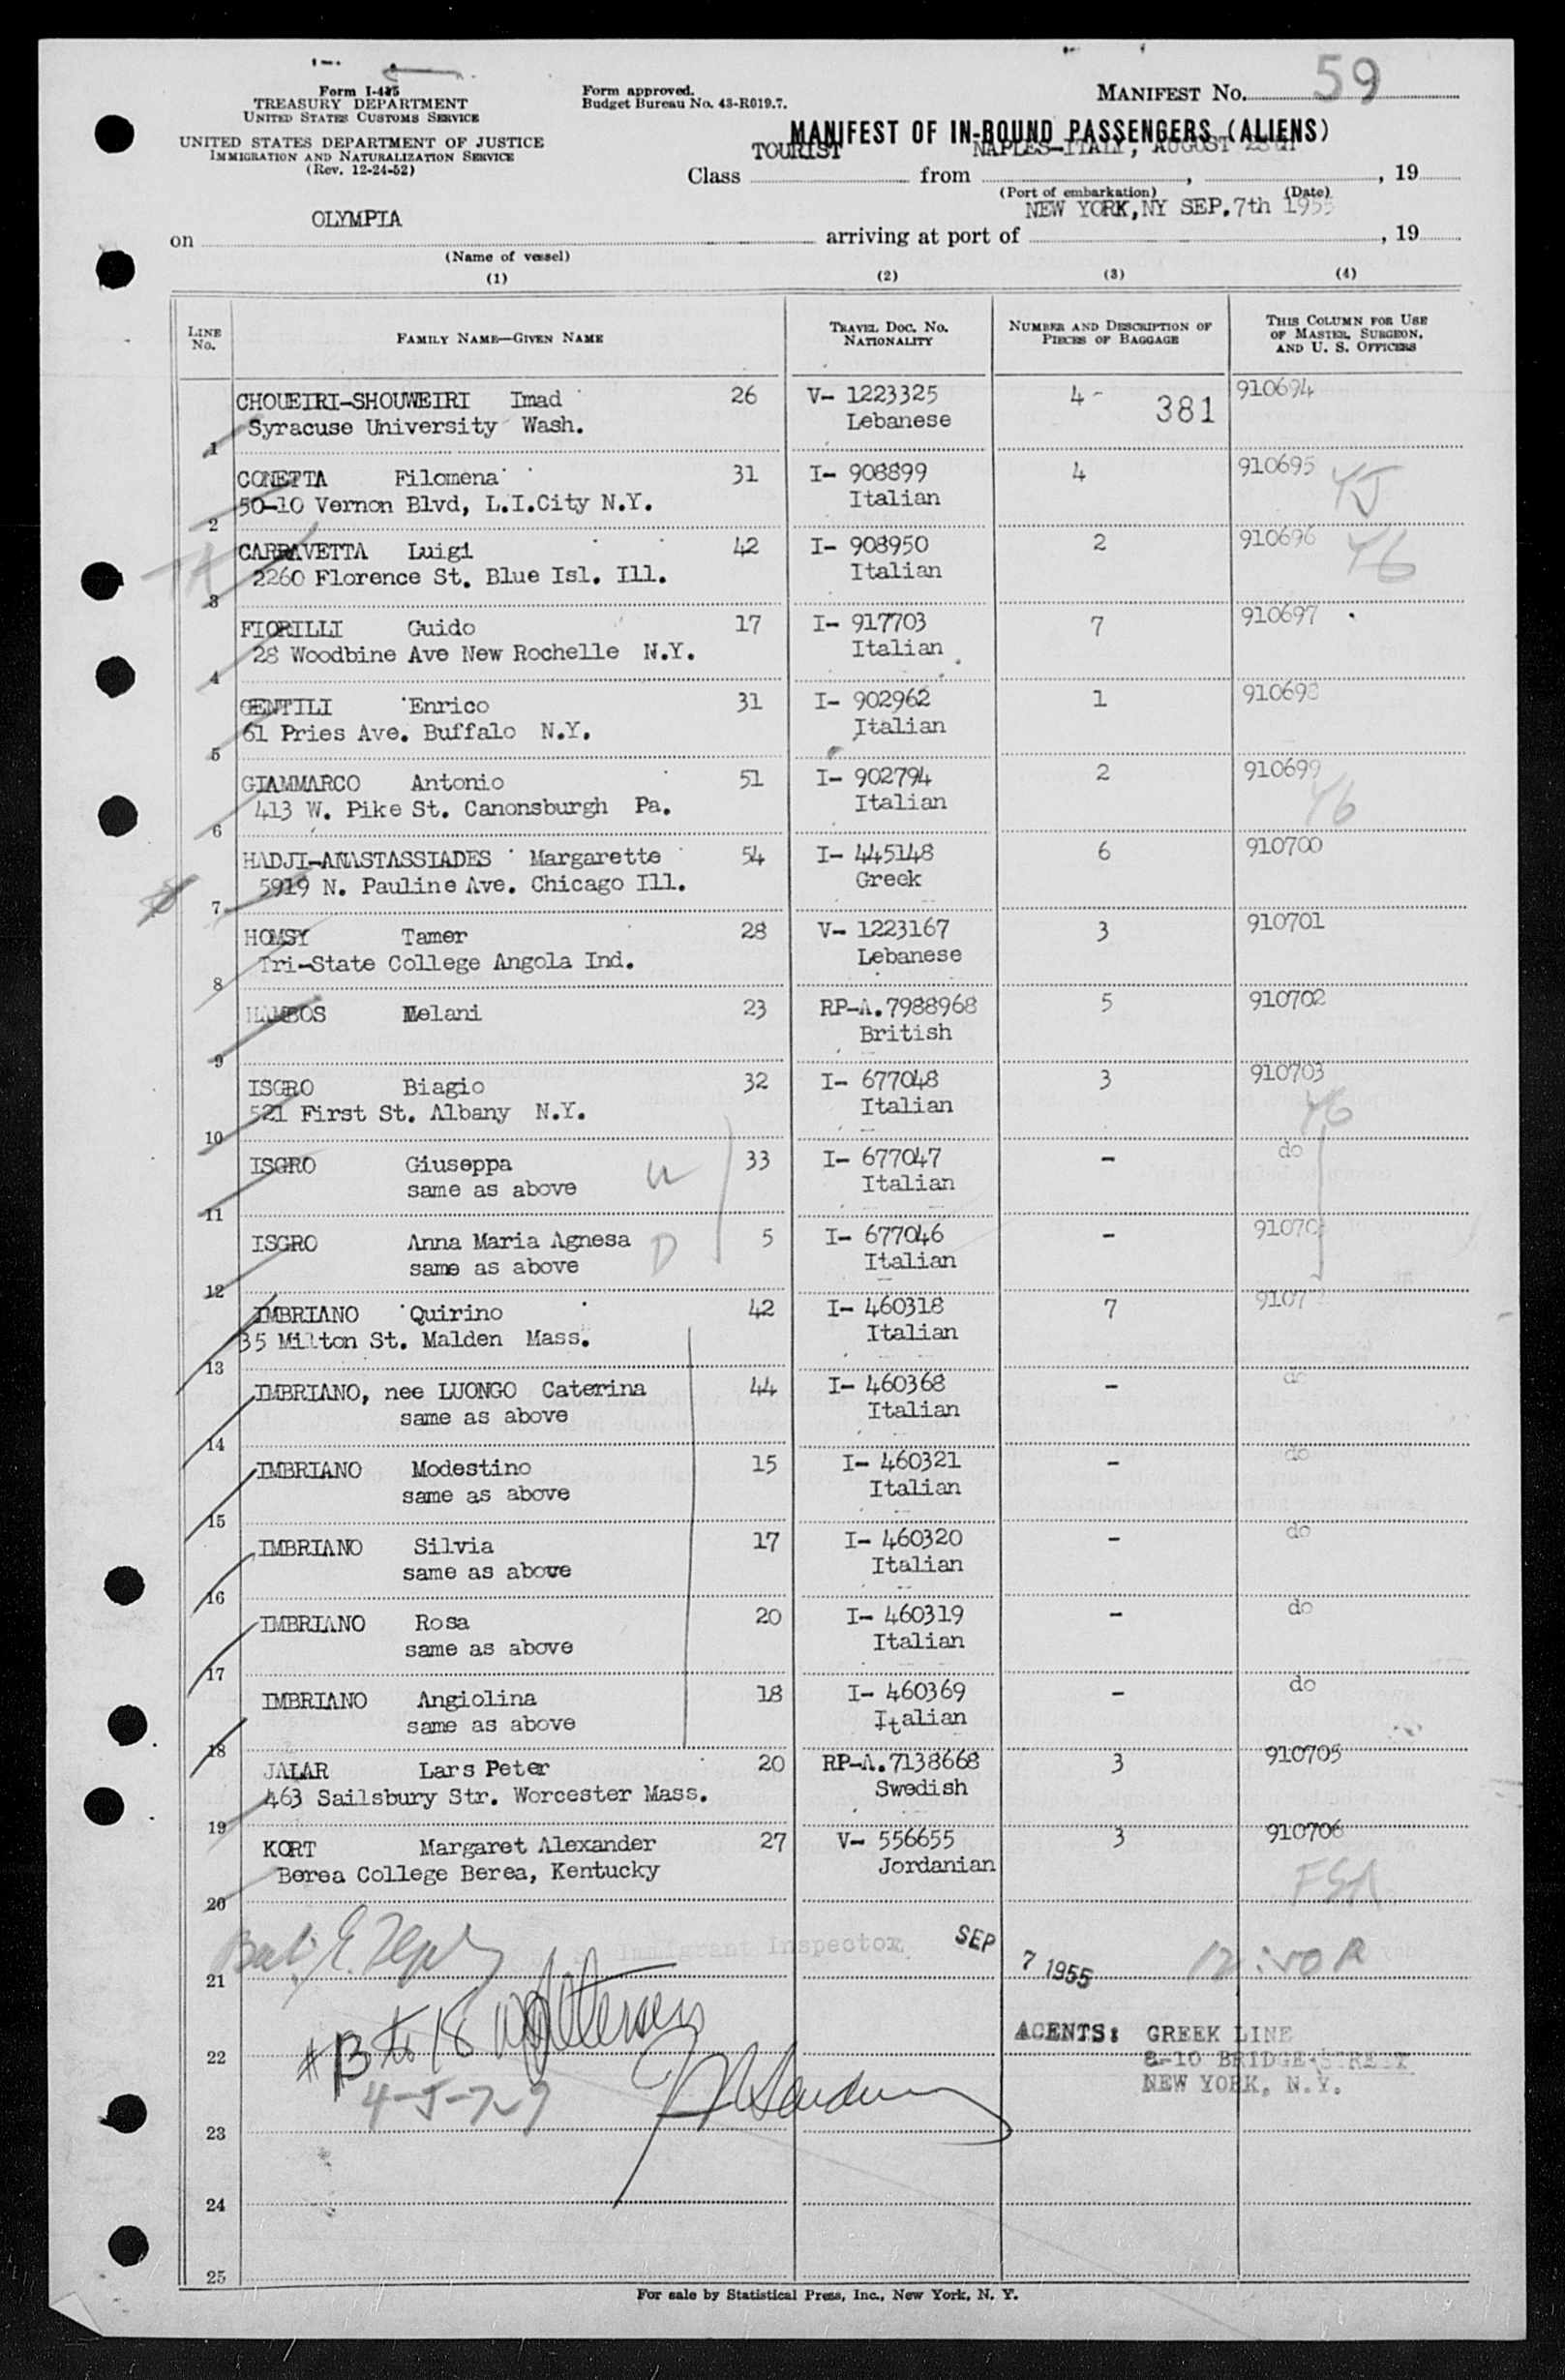 Form I-415
TREASURY DEPARTMENT
UNITED STATES CUSTOMS SERVICE
UNITED STATES DEPARTMENT OF JUSTICE
IMMIGRATION AND NATURALIZATION SERVICE
(Rev. 12-24-52)
Form approved.
Budget Bureau No. 43-R019.7.
MANIFEST No. 59
MANIFEST OF IN-BOUND PASSENGERS (ALIENS)
Class TOURIST from NAPLES-ITALY, AUGUST , 19
(Port of embarkation) (Date)
on OLYMPIA arriving at port of NEW YORK,NY SEP.7th 1955 , 19
(Name of vessel)
(1) (2) (3) (4)
LINE No. FAMILY NAME—GIVEN NAME TRAVEL DOC. No. NATIONALITY NUMBER AND DESCRIPTION OF PIECES OF BAGGAGE THIS COLUMN FOR USE OF MASTER, SURGEON, AND U. S. OFFICERS
CHOUEIRI-SHOUWEIRI Imad 26 V- 1223325 4- 381 910694
1 Syracuse University Wash. Lebanese
CONETTA Filomena 31 I- 908899 4 910695
2 50-10 Vernon Blvd, L.I.City N.Y. Italian
CARRAVETTA Luigi 42 I- 908950 2 910696
3 2260 Florence St. Blue Isl. Ill. Italian
FIORILLI Guido 17 I- 917703 7 910697
4 28 Woodbine Ave New Rochelle N.Y. Italian
GENTILI Enrico 31 I- 902962 1 910698
5 61 Pries Ave. Buffalo N.Y. Italian
GIAMMARCO Antonio 51 I- 902794 2 910699
6 413 W. Pike St. Canonsburgh Pa. Italian
HADJI-ANASTASSIADES Margarette 54 I- 445148 6 910700
7 5919 N. Pauline Ave. Chicago Ill. Greek
HOMSY Tamer 28 V- 1223167 3 910701
8 Tri-State College Angola Ind. Lebanese
HAMBOS Melani 23 RP-A.7988968 5 910702
9 British
ISGRO Biagio 32 I- 677048 3 910703
10 521 First St. Albany N.Y. Italian
ISGRO Giuseppa 33 I- 677047 - do
11 same as above Italian
ISGRO Anna Maria Agnesa 5 I- 677046 -
12 same as above Italian
IMBRIANO Quirino 42 I- 460318 7
13 35 Milton St. Malden Mass. Italian
IMBRIANO, nee LUONGO Caterina 44 I- 460368 - do
14 same as above Italian
IMBRIANO Modestino 15 I- 460321 - do
15 same as above Italian
IMBRIANO Silvia 17 I- 460320 - do
16 same as above Italian
IMBRIANO Rosa 20 I- 460319 - do
17 same as above Italian
IMBRIANO Angiolina 18 I- 460369 - do
18 same as above Italian
JALAR Lars Peter 20 RP-A.7138668 3 910705
19 463 Sailsbury Str. Worcester Mass. Swedish
KORT Margaret Alexander 27 V- 556655 3 910706
20 Berea College Berea, Kentucky Jordanian
Immigrant Inspector SEP 7 1955
21
AGENTS: GREEK LINE
22 8-10 BRIDGE STREET
NEW YORK, N.Y.
23
24
25
For sale by Statistical Press, Inc., New York, N. Y.